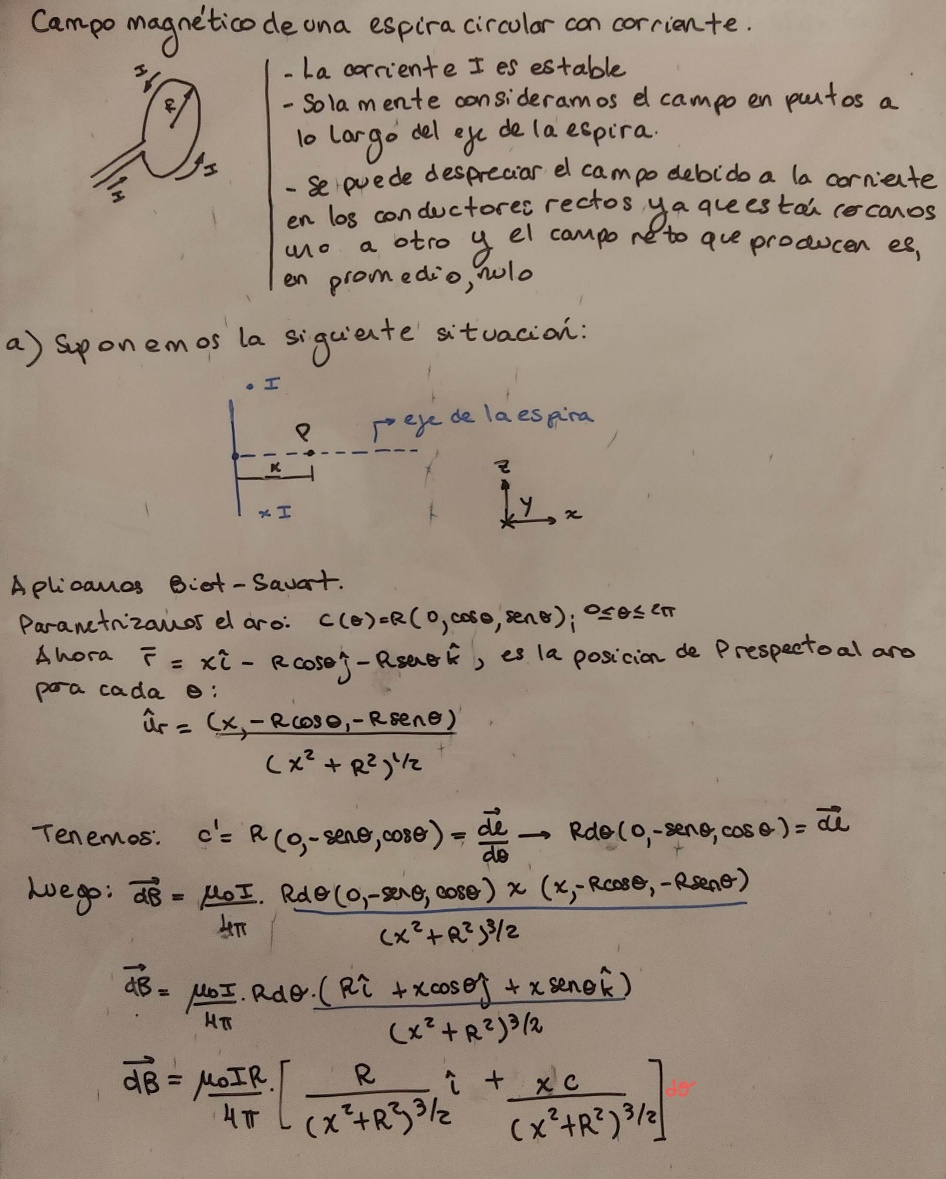 Campo magnético de una espira circular con corriente.
I
R
I
I
- La corriente I es estable
- Solamente consideramos el campo en puntos a
lo largo del eje de la espira.
- Se puede despreciar el campo debido a la corriente
en los conductores rectos ya que están cercanos
uno a otro y el campo neto que producen es,
en promedio, nulo
a) Suponemos la siguiente situación:
• I
P
eje de la espira
x
x I
z
y
x
Aplicamos Biot-Savart.
Parametrizamos el aro: C(θ)=R(0,cosθ,senθ); 0≤θ≤2π
Ahora r̄ = xî - Rcosθĵ - Rsenθk̂, es la posicion de P respecto al aro
para cada θ:
ûr = (x,-Rcosθ,-Rsenθ)
(x²+R²)^1/2
Tenemos: c' = R(0,-senθ,cosθ) = dl⃗/dθ → Rdθ(0,-senθ,cosθ) = dl⃗
Luego: dB⃗ = μ₀I/4π . Rdθ(0,-senθ,cosθ) x (x,-Rcosθ,-Rsenθ)
(x²+R²)^3/2
dB⃗ = μ₀I/4π . Rdθ.(Rî + xcosθĵ + xsenθk̂)
(x²+R²)^3/2
dB⃗ = μ₀IR/4π . [ R/(x²+R²)^3/2 î + xc/(x²+R²)^3/2 ] dθ